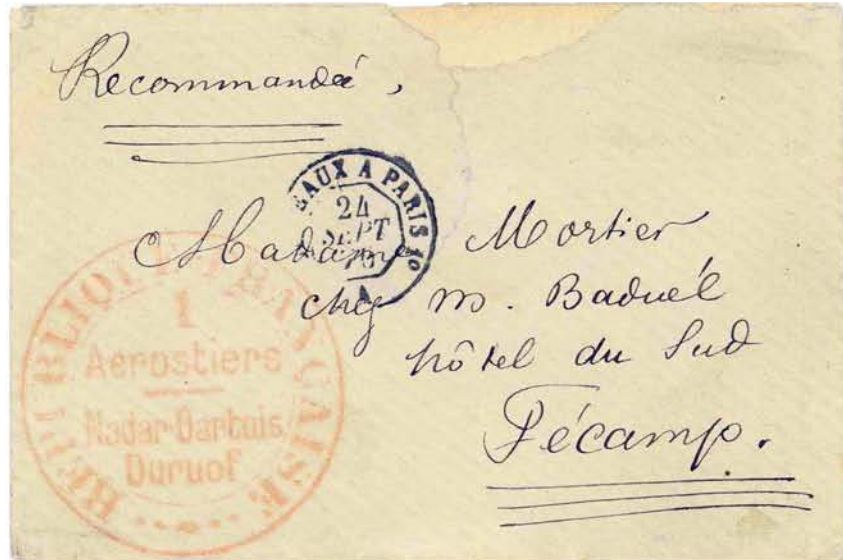 Recommandée,
EAUX A PARIS 1º
24
SEPT
70
A
Madame Mortier
chez m. Baduel
hôtel du Sud
Fécamp.
REPUBLIQUE FRANÇAISE
1
Aerostiers
Nadar-Dartois
Duruof